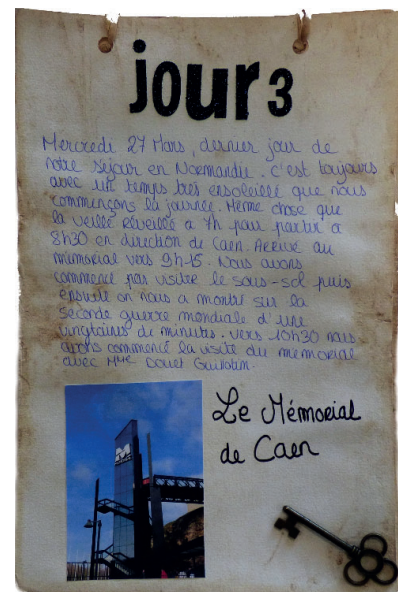 jour 3
Mercredi 27 Mars, dernier jour de
notre séjour en Normandie. C'est toujours
avec un temps très ensoleillé que nous
commençons la journée. Même chose que
la veille réveillé a 7h pour partir a
8h30 en direction de Caen. Arrivé au
mémorial vers 9h15. Nous avons
commencé par visiter le sous-sol puis
ensuite on nous a montré sur la
seconde guerre mondiale d'une
vingtaines de minutes. Vers 10h30 nous
avons commencé la visite du memorial
avec Mme Douet Guillotin.
Le Mémorial
de Caen